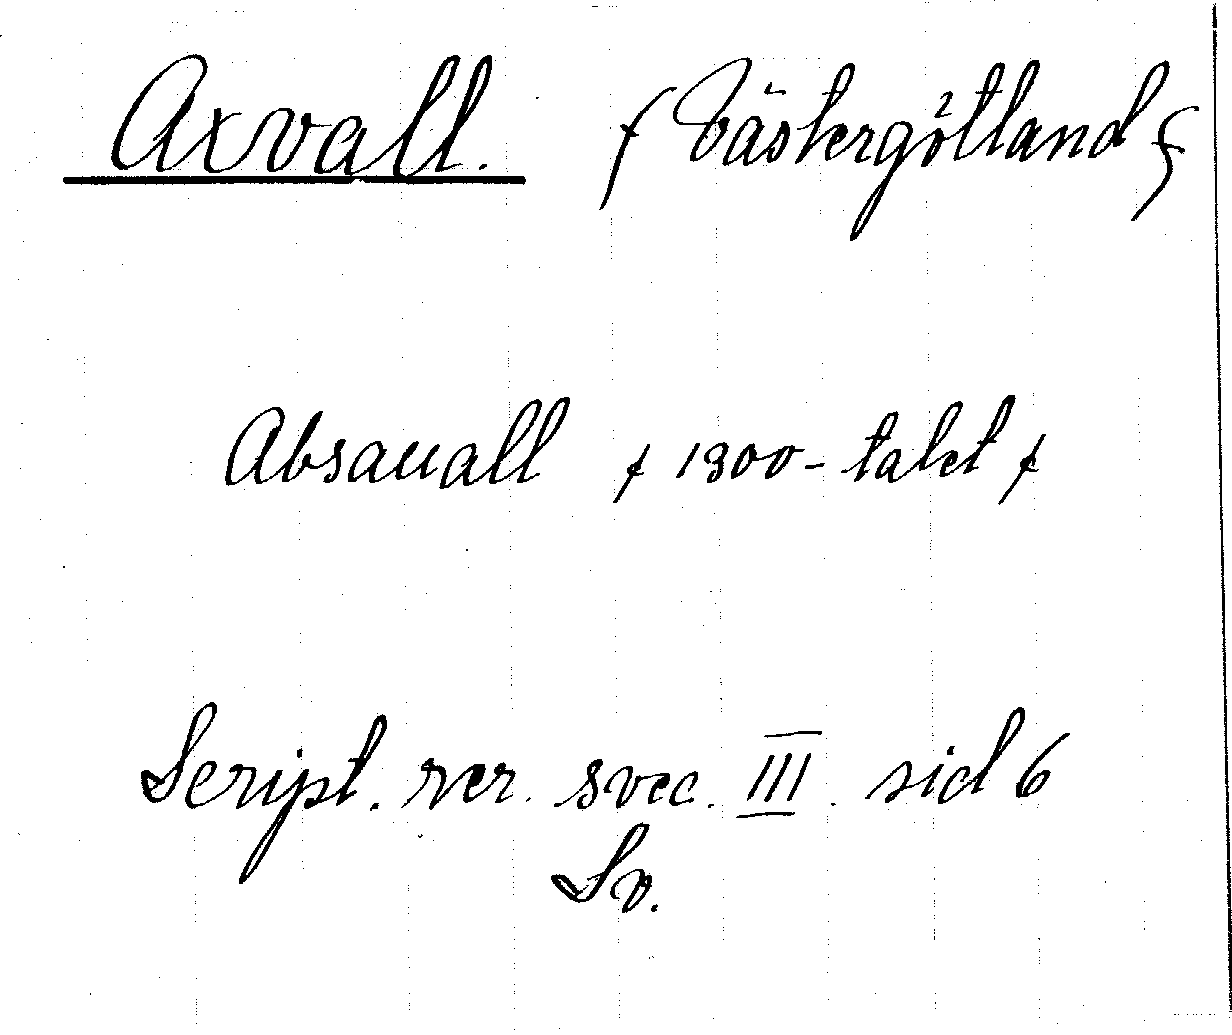 Axvall. (Västergötland)
Absauall (1300-talet)
Script. rer. svec. III. sid 6
Sv.